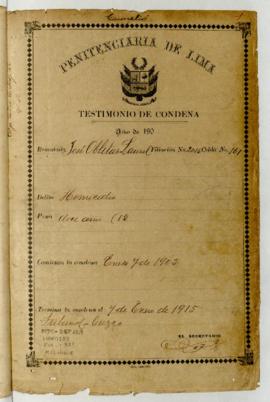 PENITENCIARIA DE LIMA
TESTIMONIO DE CONDENA
Año de 190
Rematado, José Filiación No. Celda No. 161
Delito Homicidio
Pena doce años (12
Comienza la condena Enero 7 de 1903
Termina la condena el 7 de Enero de 1915
Tribunal - Cuzco
EL SECRETARIO